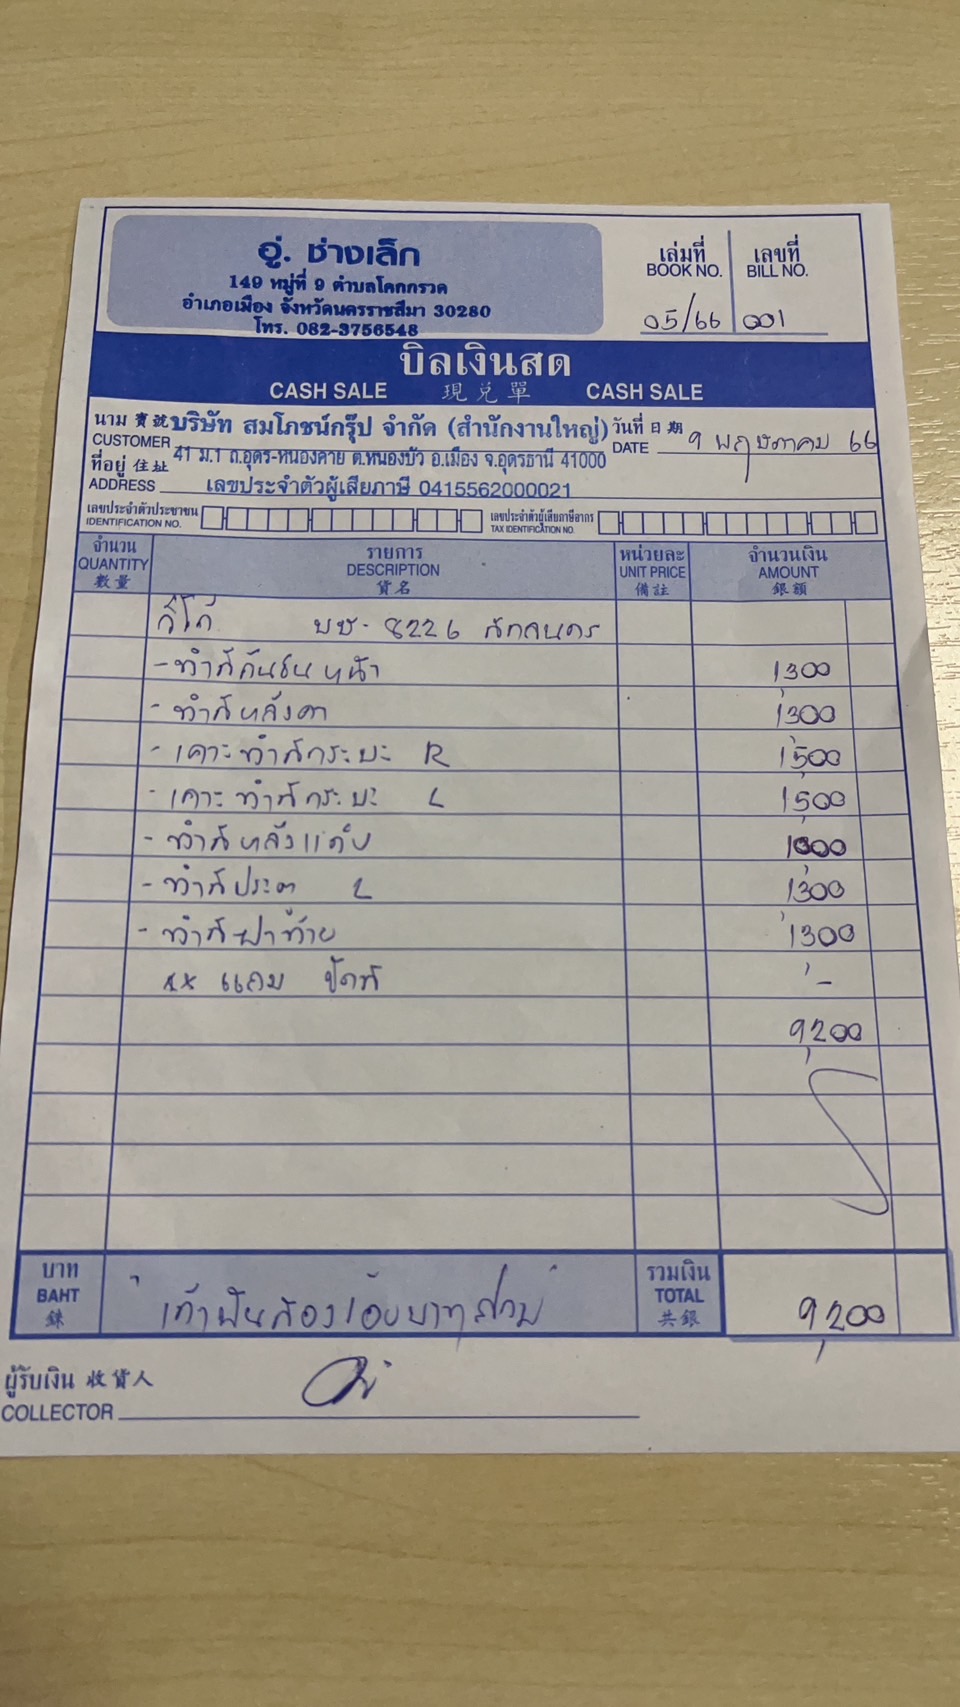 อู่. ช่างเล็ก
149 หมู่ที่ 9 ตำบลโคกกรวด
อำเภอเมือง จังหวัดนครราชสีมา 30280
โทร. 082-3756548
เล่มที่ เลขที่
BOOK NO. BILL NO.
05/66 001
บิลเงินสด
CASH SALE 現兑單 CASH SALE
นาม 賓號 บริษัท สมโภชน์กรุ๊ป จำกัด (สำนักงานใหญ่) วันที่ 日期
CUSTOMER DATE 9 พฤษภาคม 66
ที่อยู่ 住址 41 ม.1 ถ.อุดร-หนองคาย ต.หนองบัว อ.เมือง จ.อุดรธานี 41000
ADDRESS เลขประจำตัวผู้เสียภาษี 0415562000021
เลขประจำตัวประชาชน เลขประจำตัวผู้เสียภาษีอากร
IDENTIFICATION NO. TAX IDENTIFICATION NO.
จำนวน รายการ หน่วยละ จำนวนเงิน
QUANTITY DESCRIPTION UNIT PRICE AMOUNT
數量 貨名 備註 銀額
วีโก้ บษ-8226 สกลนคร
- ทำสีกันชนหน้า 1300
- ทำสีหลังคา 1300
- เคาะทำสีกระบะ R 1500
- เคาะทำสีกระบะ L 1500
- ทำสีหลังแค็บ 1000
- ทำสีประตู L 1300
- ทำสีฝาท้าย 1300
xx แถม ขัดสี -
9,200
บาท รวมเงิน
BAHT เก้าพันสองร้อยบาทถ้วน TOTAL 9,200
銖 共銀
ผู้รับเงิน 收貨人
COLLECTOR